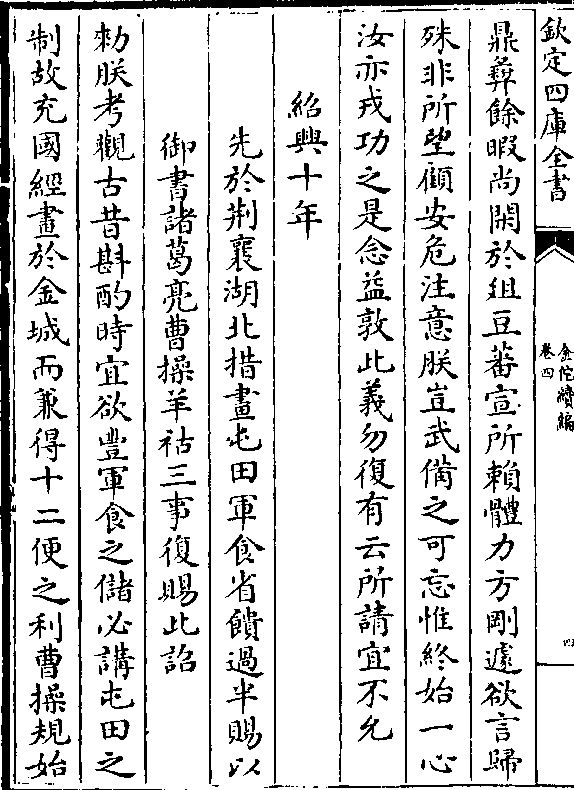 欽定四庫全書
金陀續編
卷四
四
鼎彝餘暇尚閑於俎豆蕃宣所賴體力方剛遽欲言歸
殊非所望顧安危注意朕豈武備之可忘惟終始一心
汝亦戎功之是念益敦此義勿復有云所請宜不允
紹興十年
先於荆襄湖北措畫屯田軍食省饋過半賜以
御書諸葛亮曹操羊祜三事復賜此詔
勑朕考觀古昔斟酌時宜欲豐軍食之儲必講屯田之
制故充國經畫於金城而兼得十二便之利曹操規始